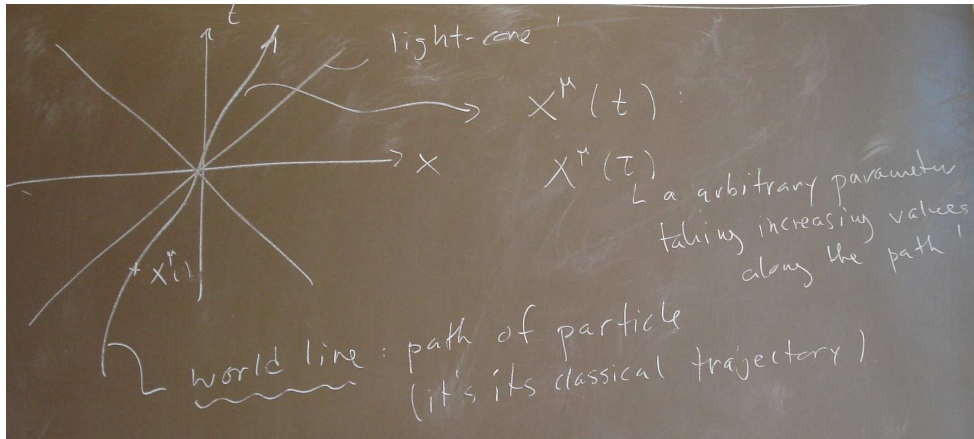 t
light-cone!
X^μ(t)
x
X^μ(τ)
a arbitrary parameter
taking increasing values
along the path!
world line: path of particle
(it's its classical trajectory).